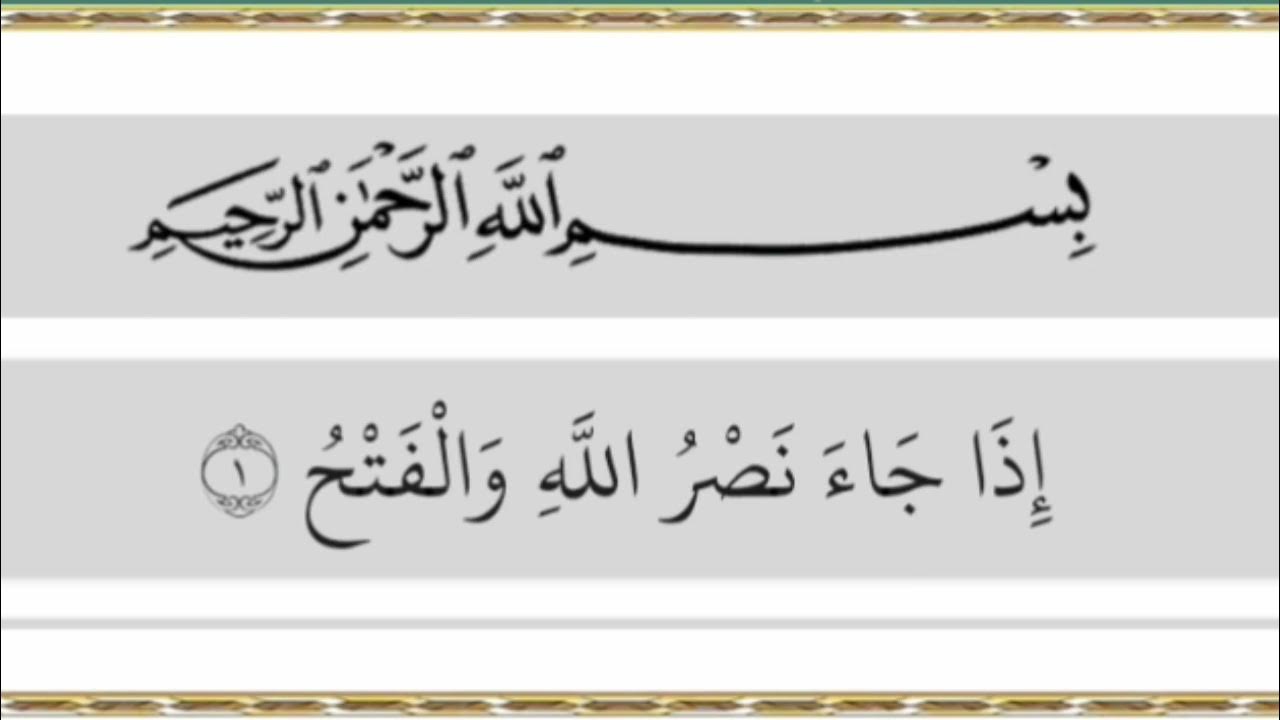 بِسْمِ ٱللَّهِ ٱلرَّحْمَٰنِ ٱلرَّحِيمِ
إِذَا جَاءَ نَصْرُ اللَّهِ وَالْفَتْحُ ١